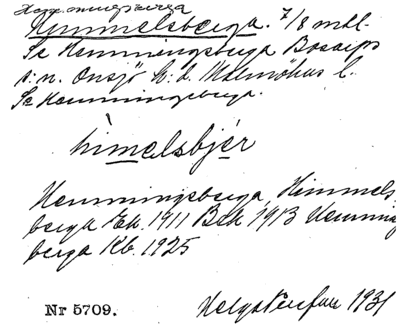 Hemmingsberga
Himmelsberga. 7/8 mtl.
Se Hemmingsberga Bosarps
s:n. Onsjö h:d. Malmöhus l.
Se Hemmingsberga.
himelsbjér
Hemmingsberga, Himmels
berga Ek. 1911 Bek 1913 Hemmings
berga Kb. 1925
Nr 5709.
1931